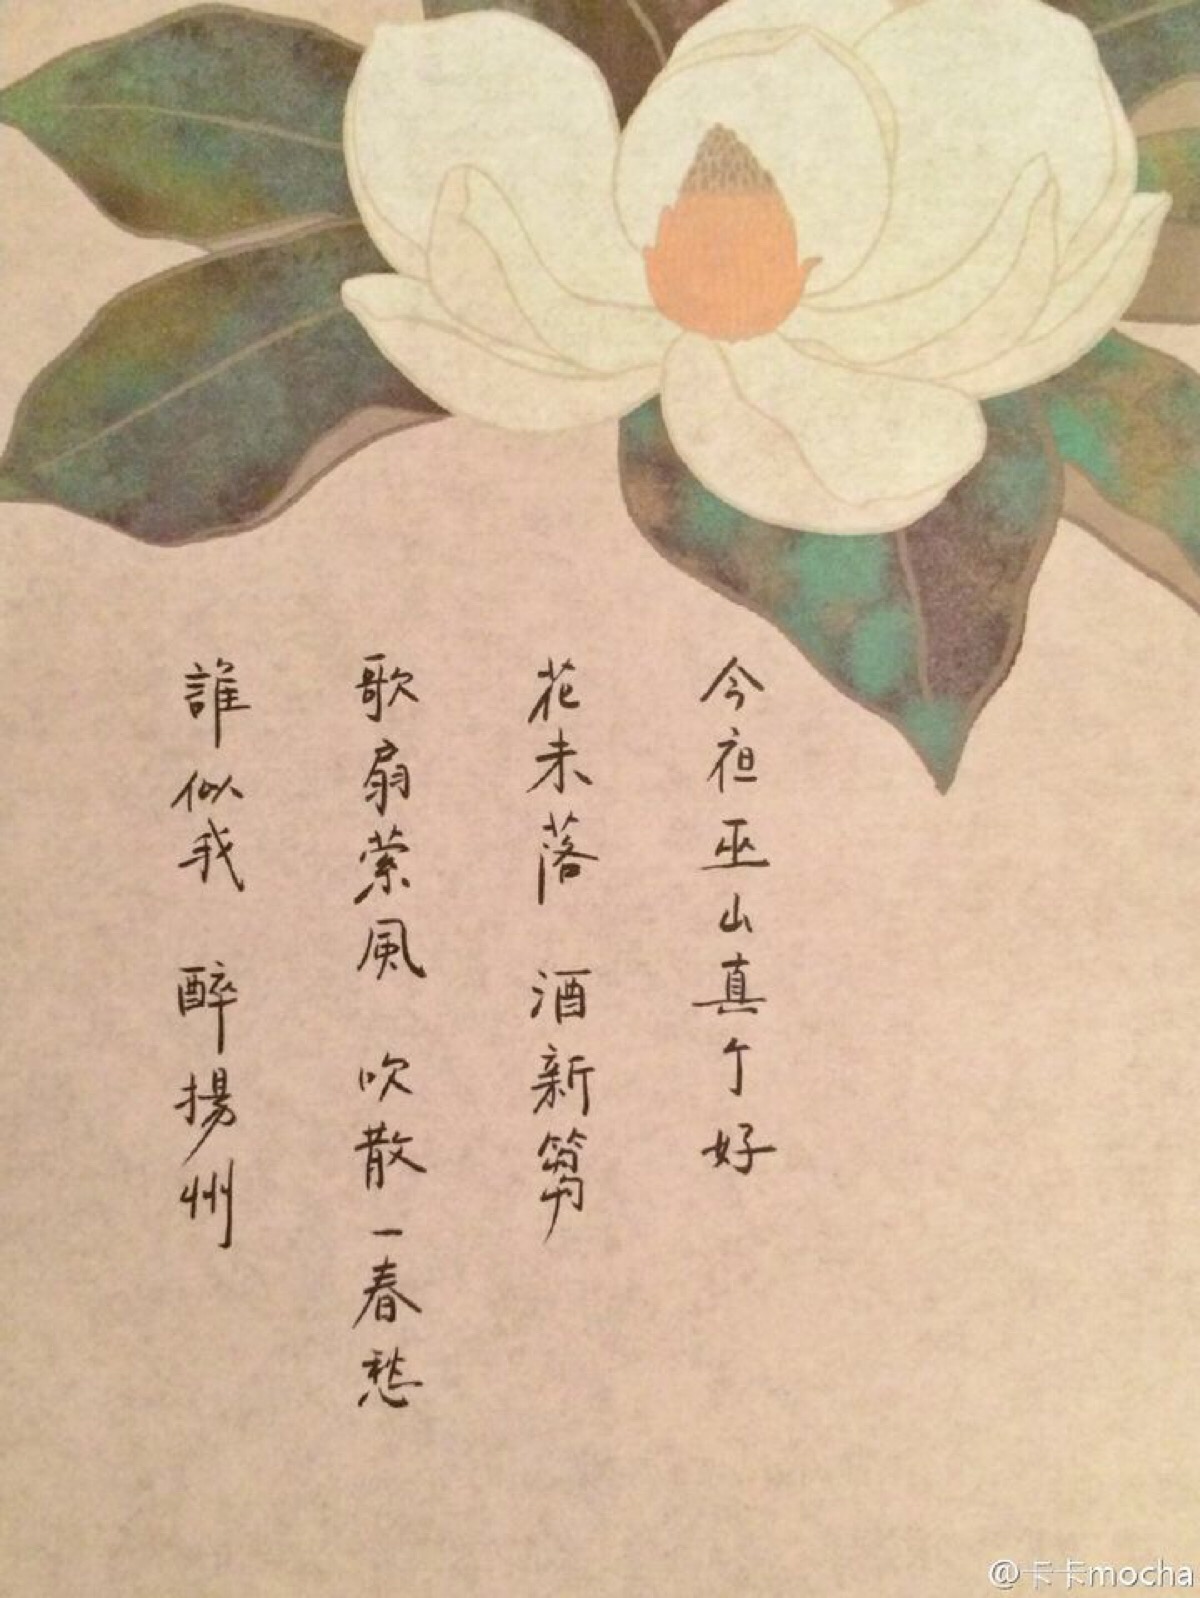 今夜巫山真个好
花未落 酒新篘
歌扇萦風 吹散一春愁
誰似我 醉揚州
@卡卡mocha